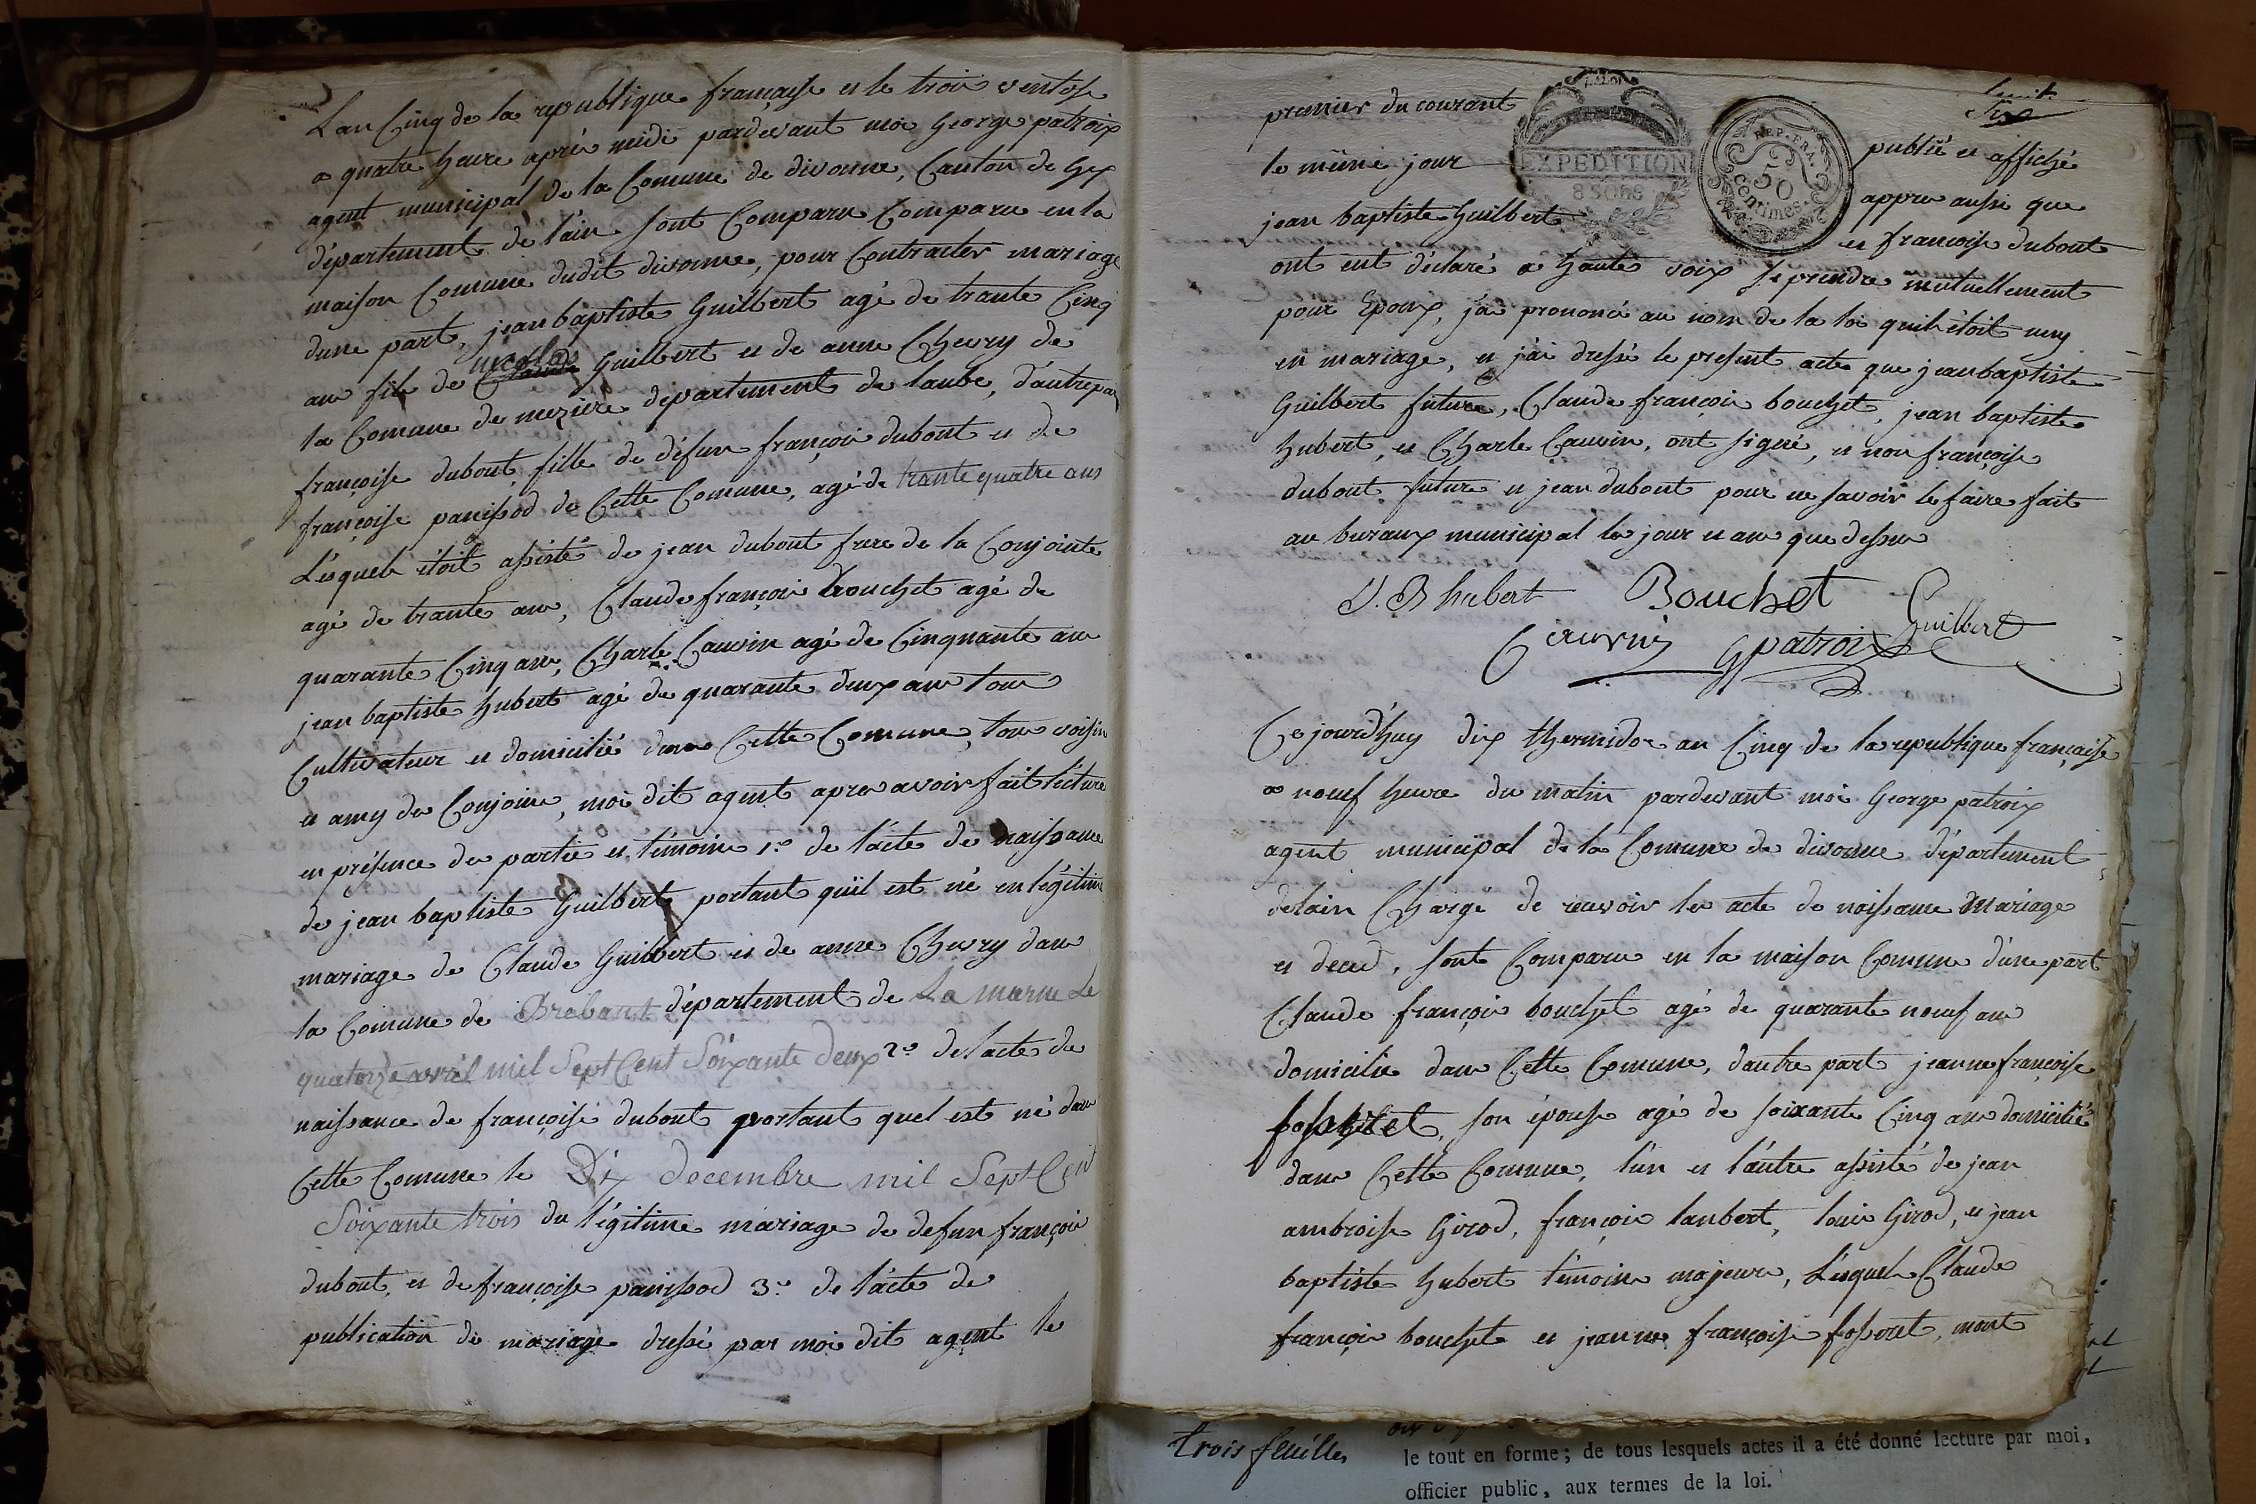 Lan Cinq de la republique françaisse et le trois ventose
a quatre heure après midi pardevant moi George patroix
agent municipal de la Comune de divonne, Canton de Gex
département de l'ain sont Comparu Comparu en la
maison Comune dudit divonne, pour Contracter mariage
dune part, jean baptiste Guilbert agé de trante Cinq
ans fils de Claude nicolas Guilbert et de anne Chevry de
la Comune de mezière département de laube, d'autrepar
françoise dubout fille de défun françois dubout et de
françoise panissod de Cette Comune, agé de trante quatre ans
Lésquels étoit assisté de jean dubout frere de la Conjointe
agé de trante ans, Claude françois bouchet agé de
quarante Cinq ans, Charle Cauvin agé de Cinquante ans
jean baptiste hubert agé de quarante deux ans tous
Cultivateur et domicilié dans Cette Comune, tous voisin
et amy des Conjoins, moi dit agent apres avoir fait lecture
en présence des partie et témoins 1.o de l'acte de naissance
de jean baptiste Guilbert portant quil est né en légitime
mariage de Claude Guilbert et de anne Chevry dans
la Comune de Brabant département de La marne Le
quatorze avril mil Sept Cent Soixante deux 2.o de l'acte de
naissance de françoise dubout portant quel est né dans
Cette Comune le Dix decembre mil Sept Cent
Soixante trois du légitime mariage de defun françois
dubout, et de françoise panissod 3.o de l'acte de
publication de mariage dressé par moi dit agent le
premier du courant publié et affiché
le même jour appres aussi que
jean baptiste Guilbert et françoise dubout
ont eut déclaré a haute voix se prendre mutuellement
pour Epoux, j'ai prononcé au nom de la loi quils étoit uny
en mariage, et j'ai dressé le present acte que jean baptiste
Guilbert future, Claude françois bouchet, jean baptiste
hubert, et Charle Cauvin, ont signé, et non françoise
dubout future et jean dubout pour ne savoir le faire fait
au buraux municipal les jour et an que dessus
EXPEDITION
8 SOUS
REP. FRA.
50
centimes
J. B hubert Bouchet Guilbert
Cauvin Gpatroix
Cejourd'huy dix thermidor an Cinq de la republique française
a neuf heure du matin pardevant moi George patroix
agent municipal de la Comune de divonne département
delain Chargé de recevoir les acte de naissance mariage
et deced, sont Comparu en la maison Comune d'une part
Claude françois bouchet agé de quarante neuf ans
domicilié dans Cette Comune, dautre part jeanne françoise
son épouse agé de soixante Cinq ans domicilié
dans Cette Comune, l'un et l'autre assisté de jean
ambroise Girod, françois lanbert, louis Girod, et jean
baptiste hubert témoins majeurs, Lésquels Claude
françois bouchet et jeanne françoise fosseret, mont
trois feuilles
le tout en forme ; de tous lesquels actes il a été donné lecture par moi,
officier public, aux termes de la loi.